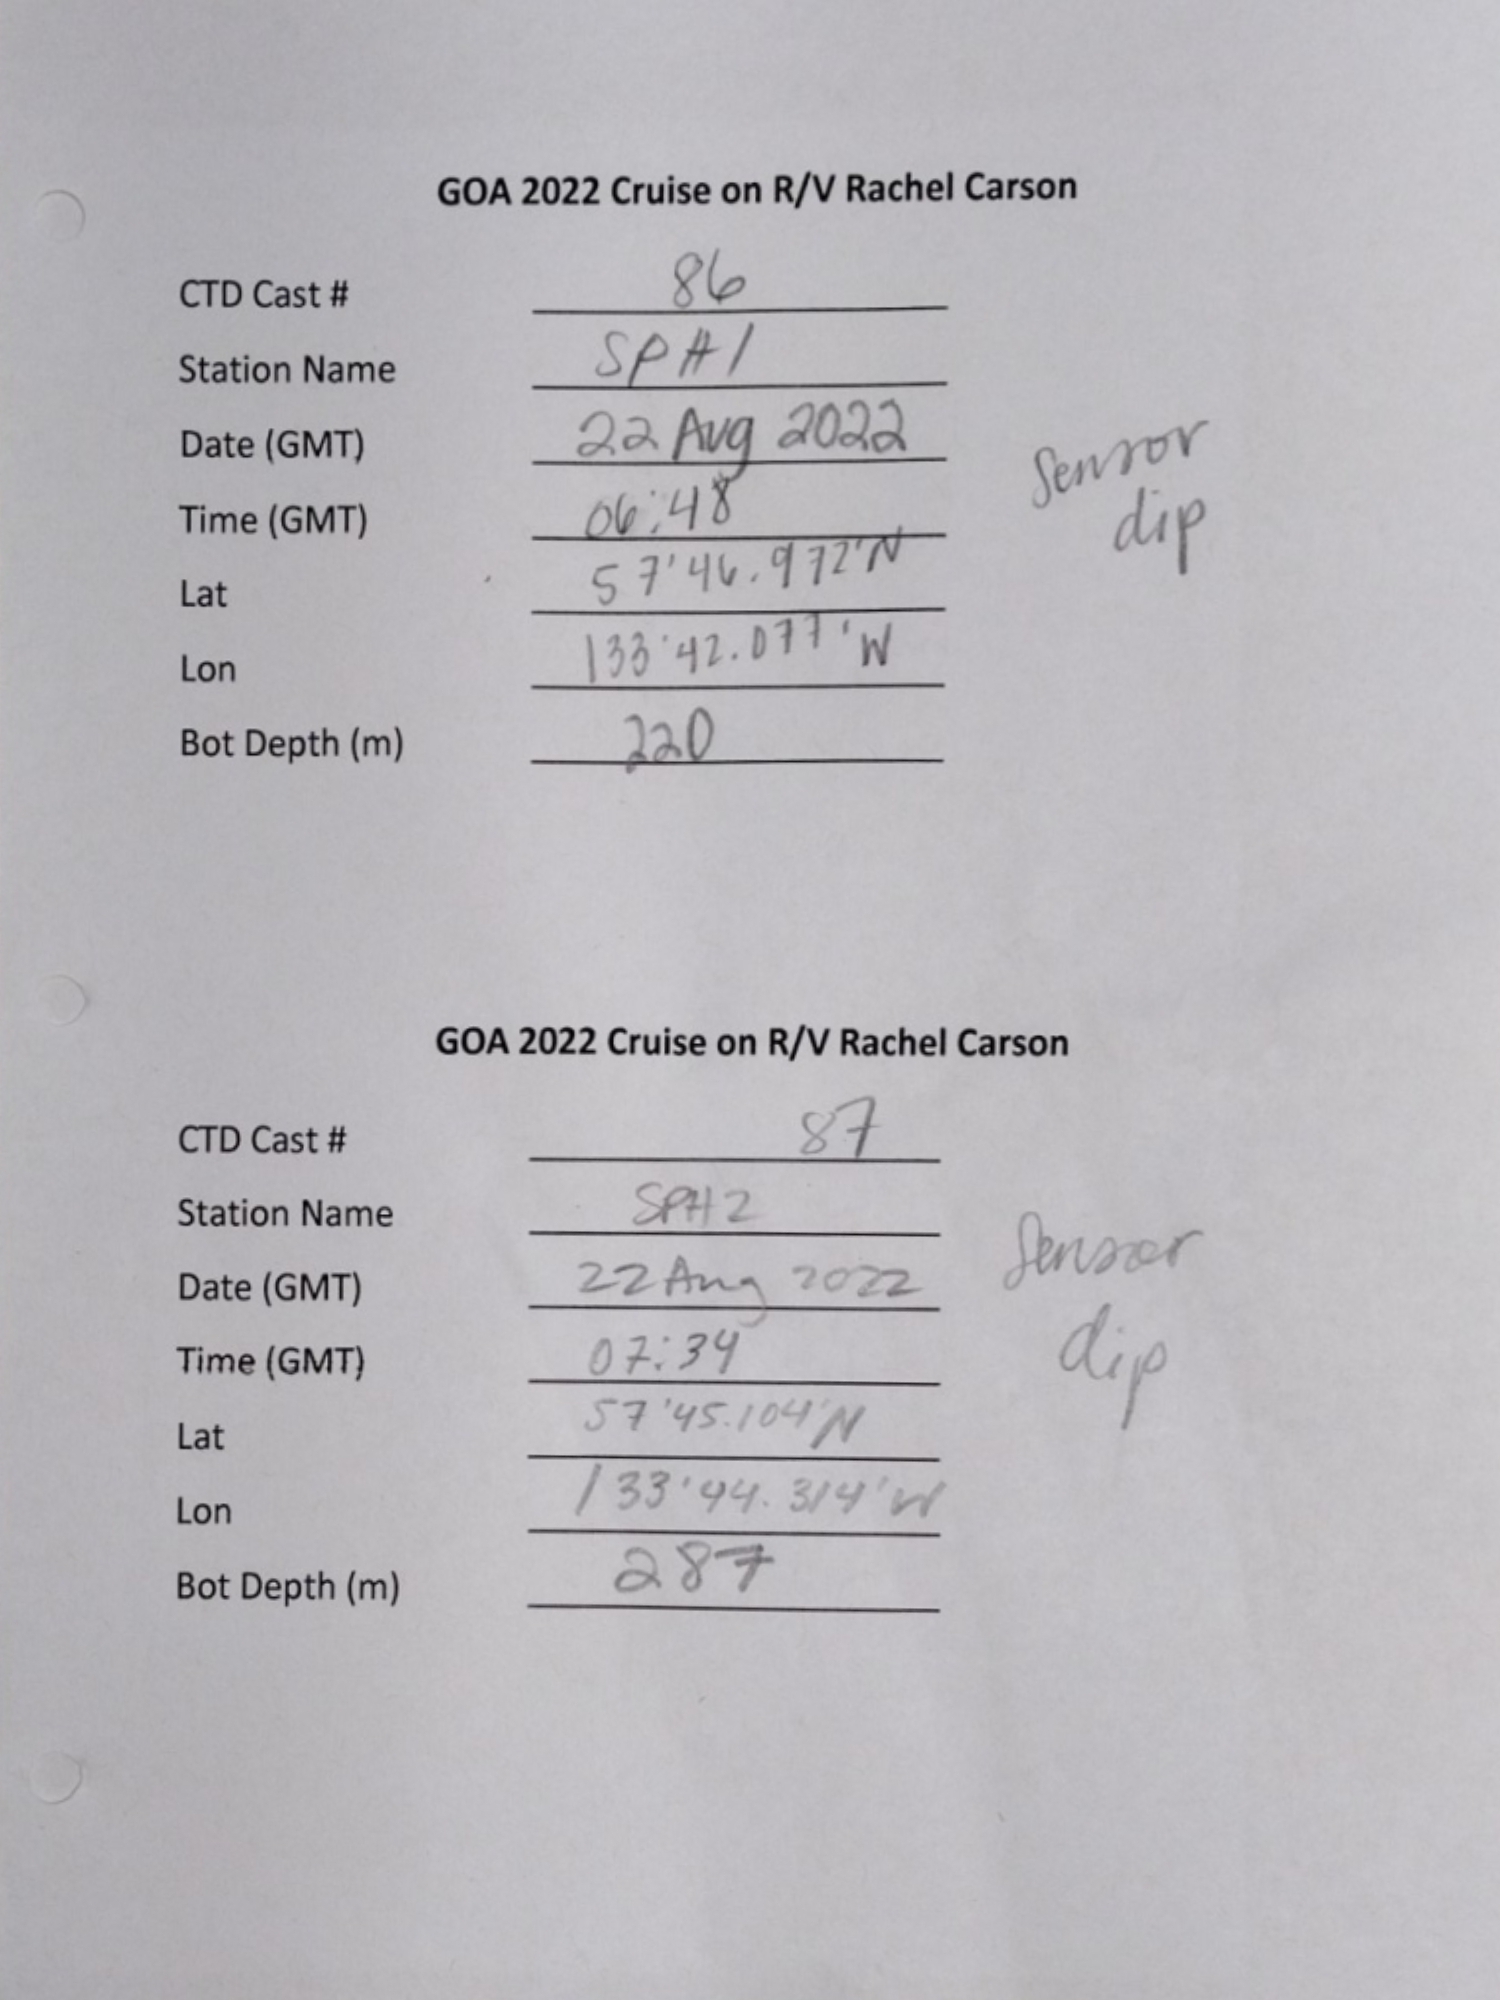 GOA 2022 Cruise on R/V Rachel Carson
CTD Cast # 86
Station Name SPH1
Date (GMT) 22 Aug 2022
Time (GMT) 06:48
Lat 57'46.972'N
Lon 133'42.077'W
Bot Depth (m) 220
Sensor
dip
GOA 2022 Cruise on R/V Rachel Carson
CTD Cast # 87
Station Name SPH2
Date (GMT) 22 Aug 2022
Time (GMT) 07:34
Lat 57'45.104'N
Lon 133'44.314'W
Bot Depth (m) 287
Sensor
dip